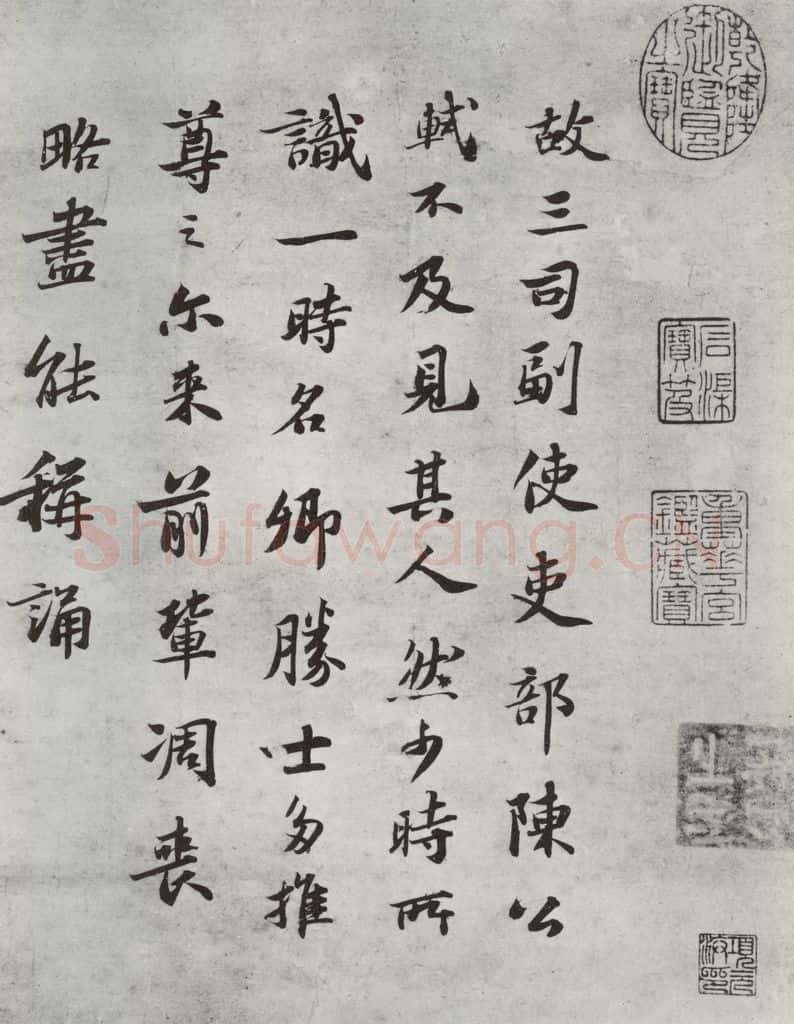 故三司副使吏部陳公
軾不及見其人然少時所
識一時名卿勝士多推
尊之尔来前輩凋喪
略盡能稱誦
石渠寶笈
Shufawang.CN